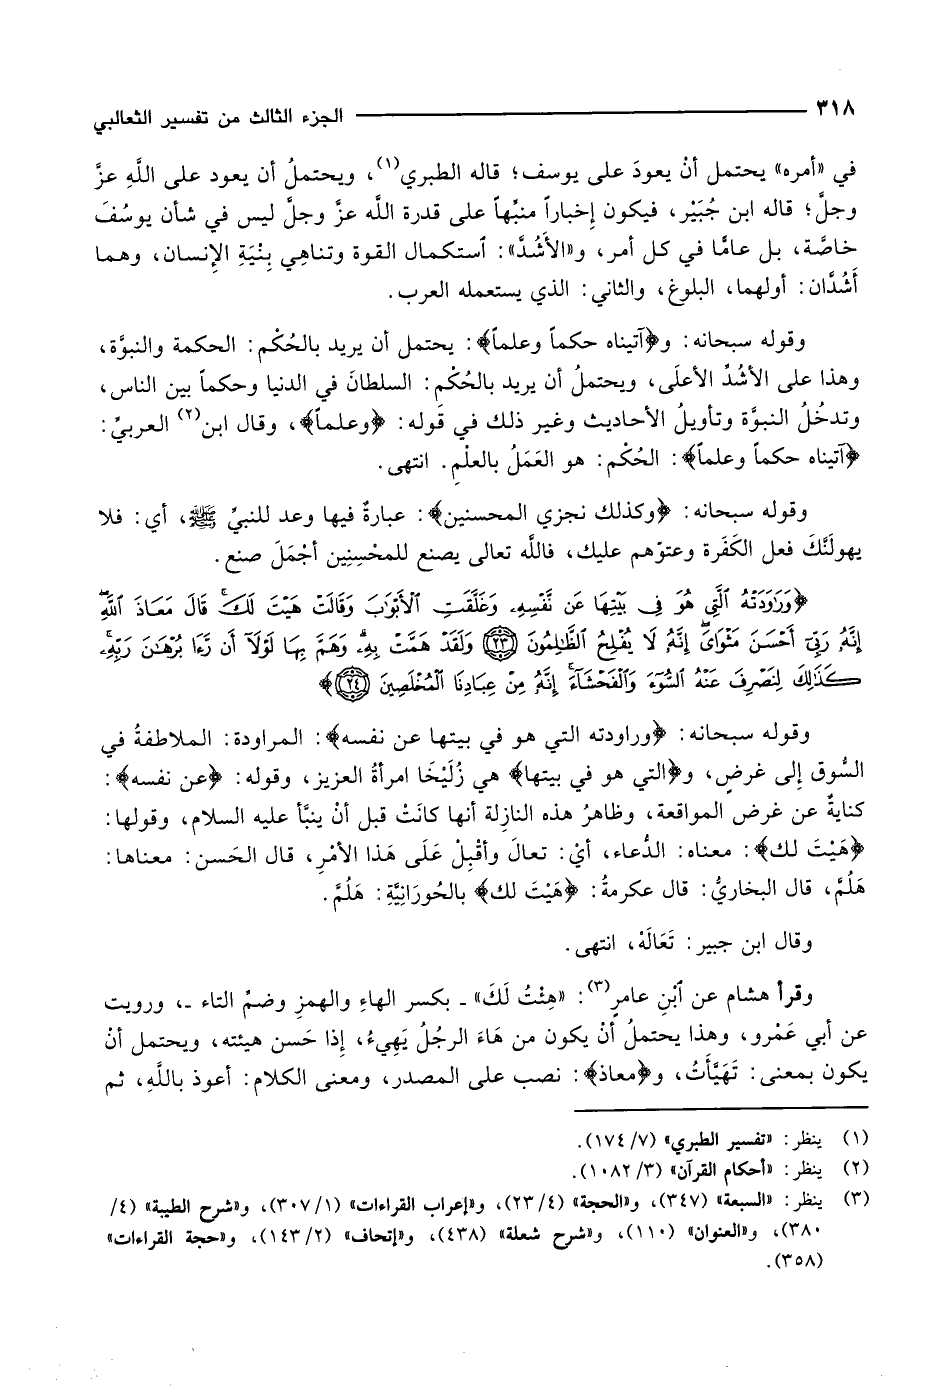 ٣١٨ الجزء الثالث من تفسير الثعالبي
في «أمره» يحتمل أنْ يعودَ على يوسف؛ قاله الطبري(١)، ويحتملُ أن يعود على اللَّهِ عزَّ
وجلَّ؛ قاله ابن جُبَيْر، فيكون إِخباراً منبِّهاً على قدرة اللَّه عزَّ وجلَّ ليس في شأن يوسُفَ
خاصَّة، بل عامًّا في كل أمر، و«الأَشُدَّ»: ٱستكمال القوة وتناهِي بِنْيَةِ الإِنسان، وهما
أَشُدَّان: أولهما، البلوغ، والثاني: الذي يستعمله العرب.
وقوله سبحانه: و﴿آتيناه حكماً وعلماً﴾: يحتمل أن يريد بالحُكْم: الحكمة والنبوَّة،
وهذا على الأشُدِّ الأعلَى، ويحتملُ أن يريد بالحُكْم: السلطانَ في الدنيا وحكماً بين الناس،
وتدخُلُ النبوَّة وتأويلُ الأحاديث وغير ذلك في قوله: ﴿وعلماً﴾، وقال ابن(٢) العربيِّ:
﴿آتيناه حكماً وعلماً﴾: الحُكْم: هو العَمَلُ بالعلْمِ. انتهى.
وقوله سبحانه: ﴿وكذلك نجزي المحسنين﴾: عبارةٌ فيها وعد للنبيِّ ﷺ، أي: فلا
يهولَنَّكَ فعل الكَفَرة وعتوّهم عليك، فاللَّه تعالى يصنع للمحْسِنِين أجْمَلَ صنع.
﴿وَرَٰوَدَتۡهُ ٱلَّتِي هُوَ فِي بَيۡتِهَا عَن نَّفۡسِهِۦ وَغَلَّقَتِ ٱلۡأَبۡوَٰبَ وَقَالَتۡ هَيۡتَ لَكَۚ قَالَ مَعَاذَ ٱللَّهِۖ
إِنَّهُۥ رَبِّيٓ أَحۡسَنَ مَثۡوَايَۖ إِنَّهُۥ لَا يُفۡلِحُ ٱلظَّٰلِمُونَ ۝٢٣ وَلَقَدۡ هَمَّتۡ بِهِۦۖ وَهَمَّ بِهَا لَوۡلَآ أَن رَّءَا بُرۡهَٰنَ رَبِّهِۦۚ
كَذَٰلِكَ لِنَصۡرِفَ عَنۡهُ ٱلسُّوٓءَ وَٱلۡفَحۡشَآءَۚ إِنَّهُۥ مِنۡ عِبَادِنَا ٱلۡمُخۡلَصِينَ ۝٢٤﴾
وقوله سبحانه: ﴿وراودته التي هو في بيتها عن نفسه﴾: المراودة: الملاطفةُ في
السُّوق إِلى غرضٍ، و﴿التي هو في بيتها﴾ هي زُلَيْخَا امرأةُ العزيز، وقوله: ﴿عن نفسه﴾:
كنايةٌ عن غرض المواقعة، وظاهرُ هذه النازلة أنها كانَتْ قبل أنْ ينبَّأ عليه السلام، وقولها:
﴿هَيْتَ لك﴾: معناه: الدُّعاء، أيْ: تعالَ وأقْبِلْ عَلَى هَذا الأمْرِ، قال الحَسن: معناها:
هَلُمَّ، قال البخاريُّ: قال عكرمةُ: ﴿هَيْتَ لك﴾ بالحُورَانِيَّةِ: هَلُمَّ.
وقال ابن جبير: تَعَالَهْ، انتهى.
وقرأ هشام عن ٱبْنِ عامرٍ(٣): «هِئْتُ لَكَ» ـ بكسر الهاءِ والهمزِ وضمِّ التاء ـ، ورويت
عن أبي عَمْرو، وهذا يحتملُ أَنْ يكون من هَاءَ الرجُلُ يَهِيءُ، إِذا حَسن هيئته، ويحتمل أنْ
يكون بمعنى: تَهَيَّأَتُ، و﴿معاذ﴾: نصب على المصدر، ومعنى الكلام: أعوذ باللَّهِ، ثم
(١) ينظر: «تفسير الطبري» (٧/ ١٧٤).
(٢) ينظر: «أحكام القرآن» (٣/ ١٠٨٢).
(٣) ينظر: «السبعة» (٣٤٧)، و«الحجة» (٤/ ٢٣)، و«إعراب القراءات» (١/ ٣٠٧)، و«شرح الطيبة» (٤/
٣٨٠)، و«العنوان» (١١٠)، و«شرح شعلة» (٤٣٨)، و«إتحاف» (٢/ ١٤٣)، و«حجة القراءات»
(٣٥٨).